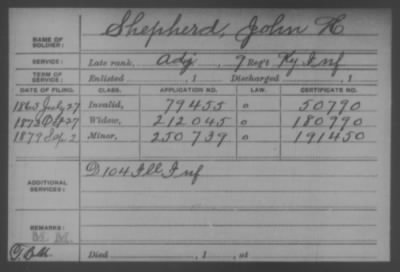 NAME OF SOLDIER: Shepherd, John H
SERVICE: Late rank, Adj, 7 Reg't Ky Inf
TERM OF SERVICE: Enlisted , 1 Discharged , 1
DATE OF FILING. CLASS. APPLICATION NO. LAW. CERTIFICATE NO.
1863 July 27 Invalid, 79455 o 50790
1873 27 Widow, 212045 o 180790
1879 Sep 2 Minor, 250739 o 191450
ADDITIONAL SERVICES: D 104 Ill Inf
REMARKS:
M. M.
Died , 1 , at